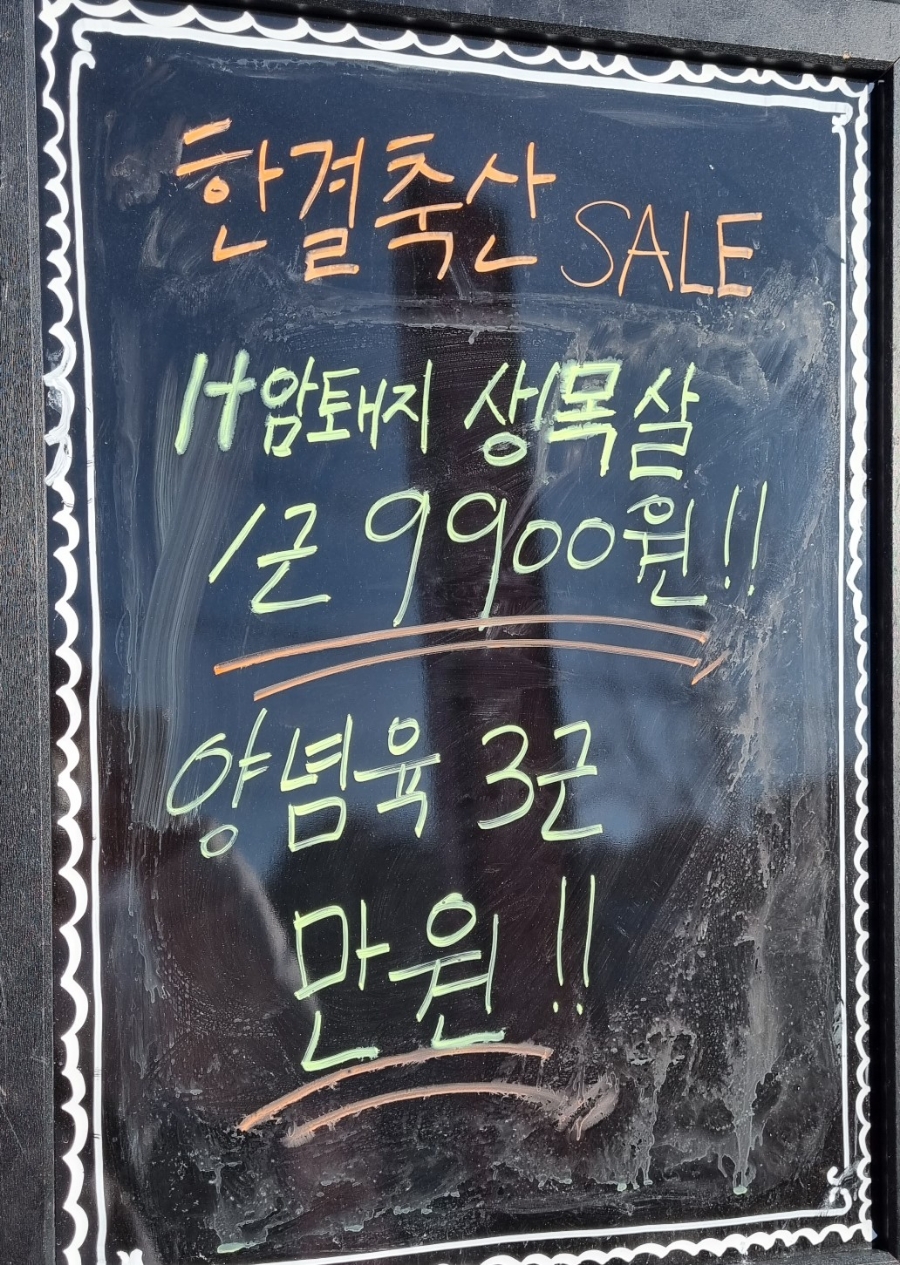 한결축산 SALE
1+암퇘지 상/목살
1근 9900원!!
양념육 3근
만원!!